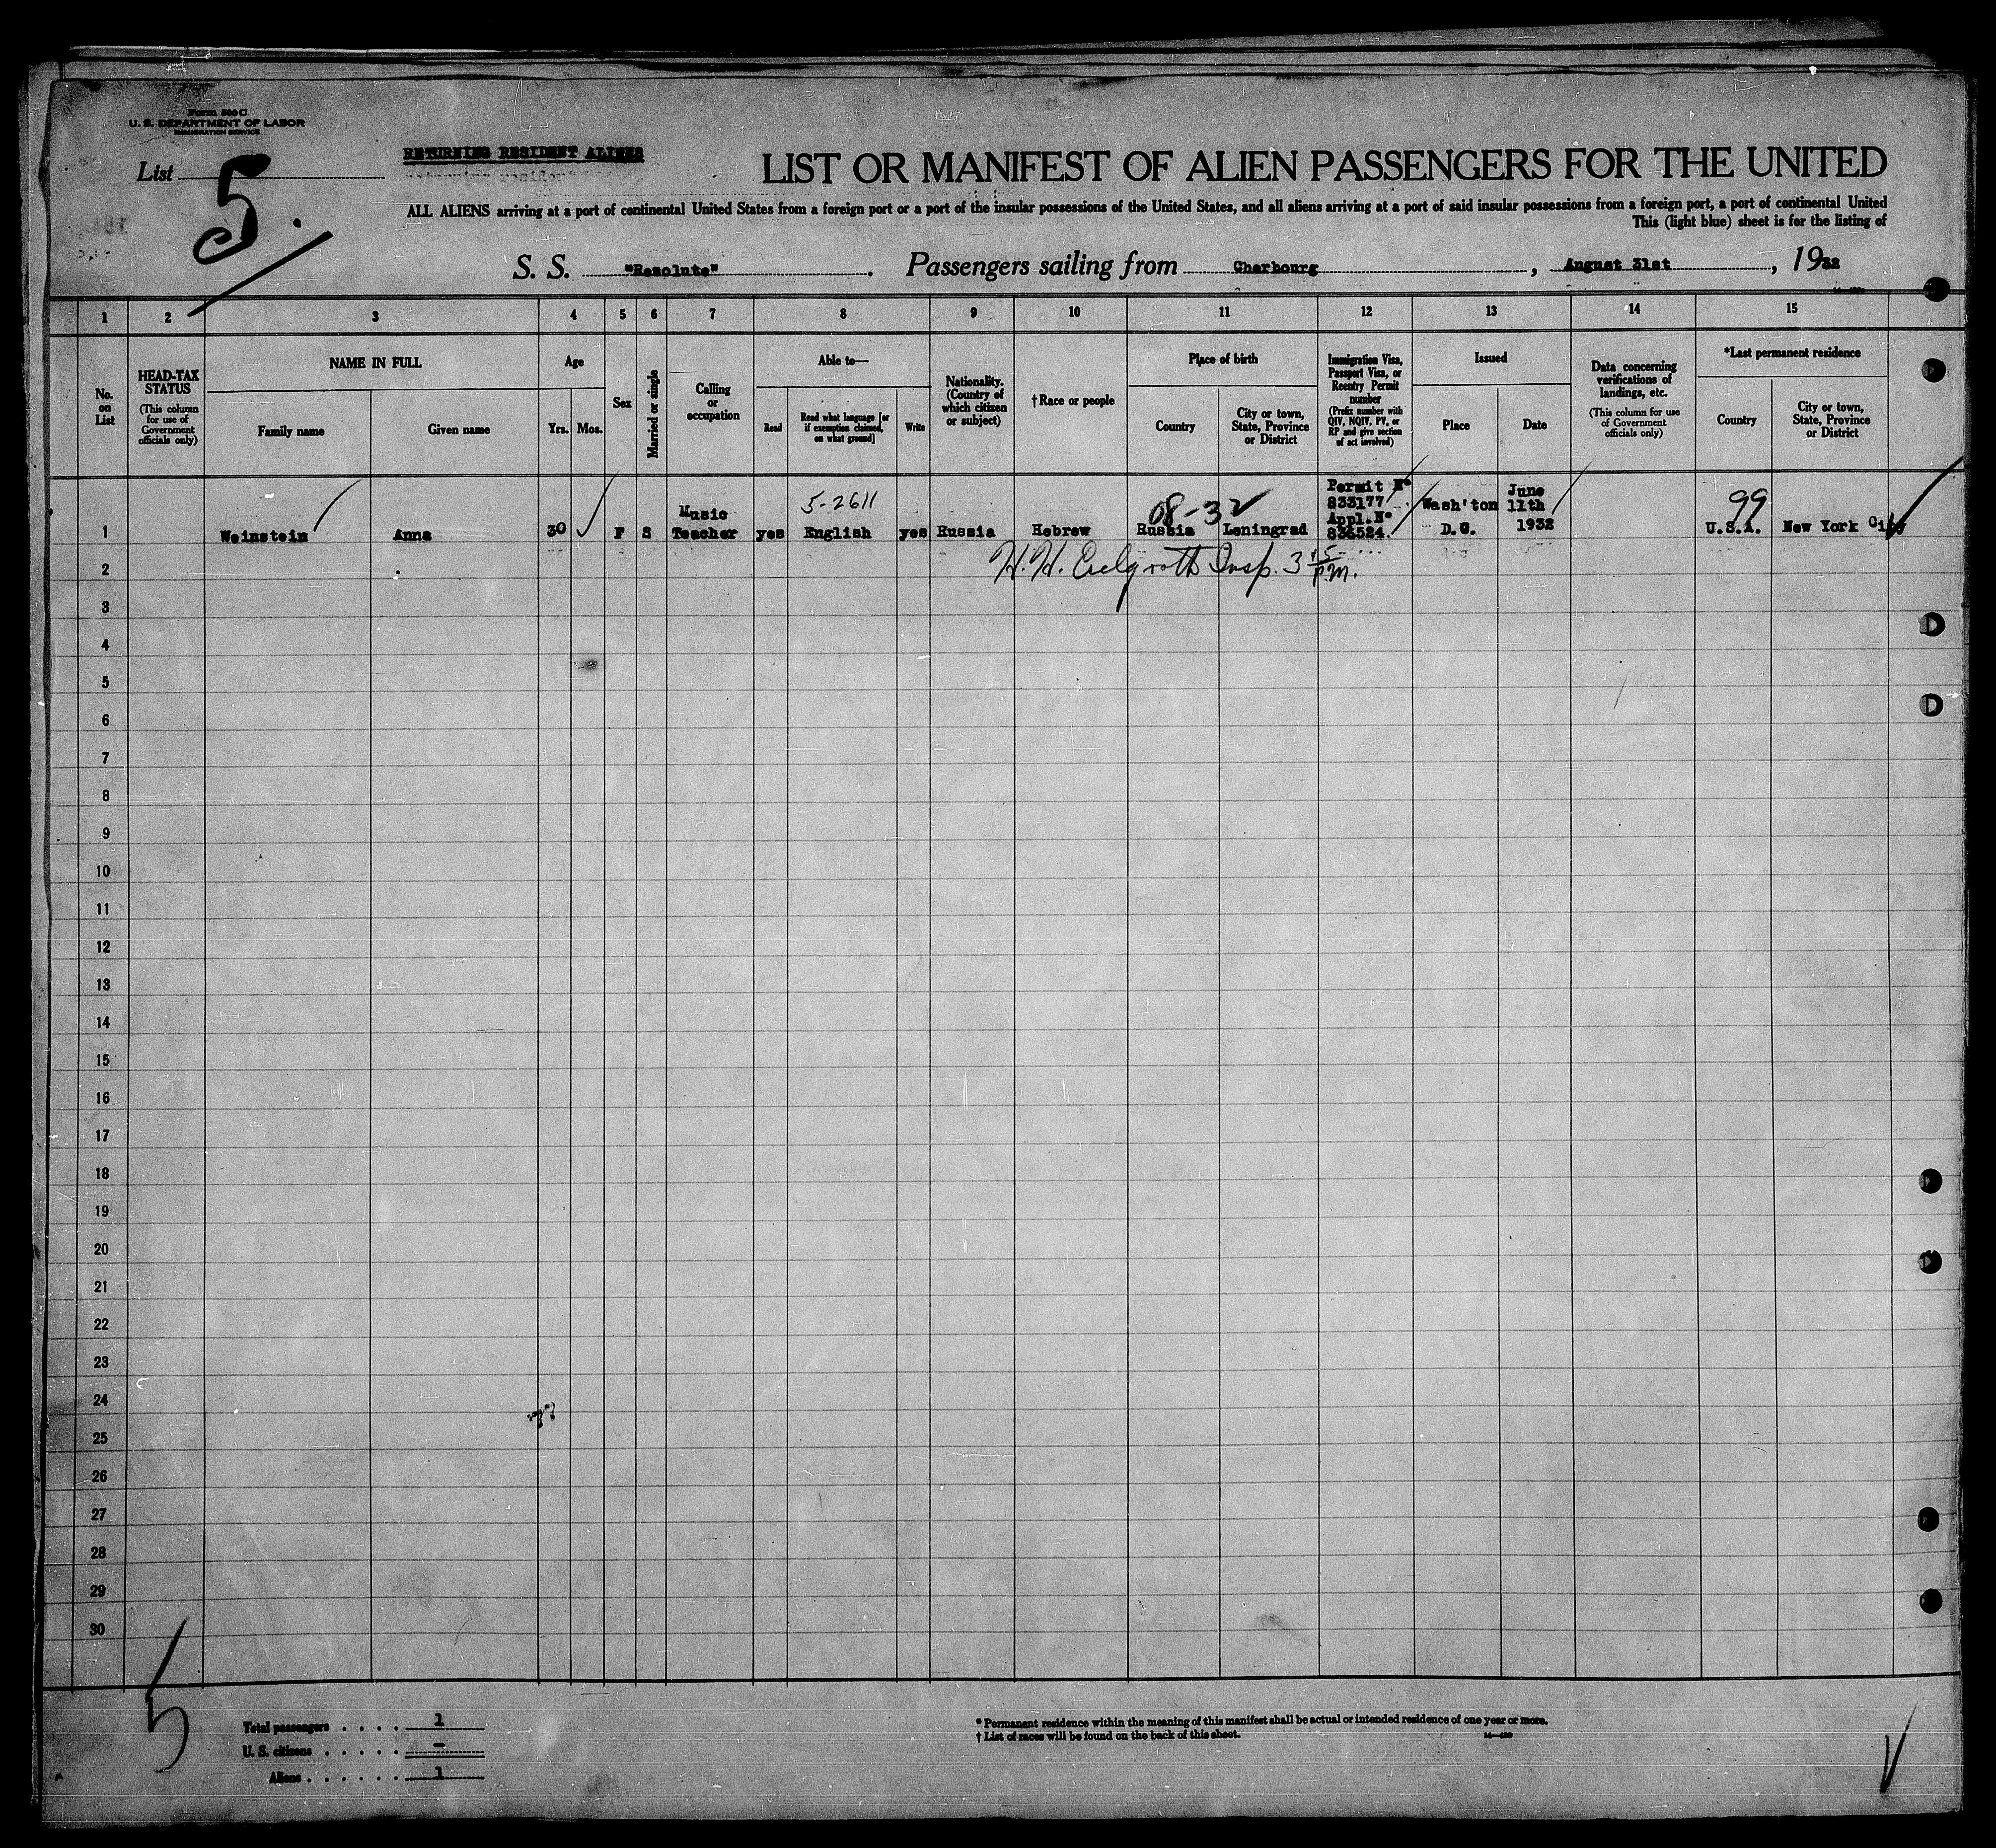 Form 500 C
U. S. DEPARTMENT OF LABOR
IMMIGRATION SERVICE
List 5.
RETURNING RESIDENT ALIENS
LIST OR MANIFEST OF ALIEN PASSENGERS FOR THE UNITED
ALL ALIENS arriving at a port of continental United States from a foreign port or a port of the insular possessions of the United States, and all aliens arriving at a port of said insular possessions from a foreign port, a port of continental United
This (light blue) sheet is for the listing of
S. S. "Resolute". Passengers sailing from Cherbourg, August 31st, 1932
1 2 3 4 5 6 7 8 9 10 11 12 13 14 15
No. on List
HEAD-TAX STATUS
(This column for use of Government officials only)
NAME IN FULL
Family name
Given name
Age
Yrs.
Mos.
Sex
Married or single
Calling or occupation
Able to—
Read
Read what language [or if exemption claimed, on what ground]
Write
Nationality. (Country of which citizen or subject)
†Race or people
Place of birth
Country
City or town, State, Province or District
Immigration Visa, Passport Visa, or Reentry Permit number
(Prefix number with QIV, NQIV, PV, or RP and give section of act involved)
Issued
Place
Date
Data concerning verifications of landings, etc.
(This column for use of Government officials only)
*Last permanent residence
Country
City or town, State, Province or District
5-2611
08-32
99
1 Weinstein Anna 30 F S Music Teacher yes English yes Russia Hebrew Russia Leningrad Permit No 833177 Appl.No 836524. Wash'ton D.C. June 11th 1932 U.S.A. New York City
2 H. H. Insp. 3 15 P.M.
3
4
5
6
7
8
9
10
11
12
13
14
15
16
17
18
19
20
21
22
23
24
25
26
27
28
29
30
5
Total passengers . . . . 1
U. S. citizens . . . . . -
Aliens . . . . . . 1
* Permanent residence within the meaning of this manifest shall be actual or intended residence of one year or more.
† List of races will be found on the back of this sheet.